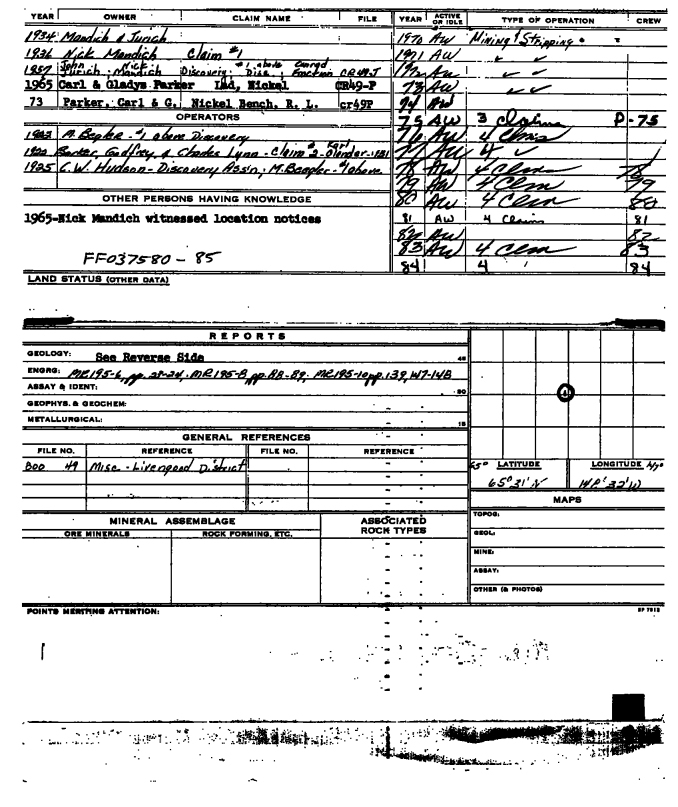 YEAR OWNER CLAIM NAME FILE YEAR ACTIVE OR IDLE TYPE OF OPERATION CREW
1934 Mandich & Jurich 1970 AW Mining & Stripping
1936 Nick Mandich Claim #1 1971 AW
1937 John Jurich; Nick Mandich Discovery; #1 above Disc; Fraction CR49J AW
1965 Carl & Gladys Parker Ind, Nickel CR49-P 73 AW
73 Parker, Carl & G. Nickel Bench, R. L. cr49P 74 AW
OPERATORS 75 AW 3 claims P-75
M. Begler - #1 above Discovery 76 AW 4 Clms
Godfrey & Charles Lynn - Claim #2 77 AW 4
1925 C.W. Hudson - Discovery Ass'n; #1 above 78 AW 4 Clem 78
79 AW 4 Clem 79
OTHER PERSONS HAVING KNOWLEDGE 80 AW 4 Clem 80
1965-Nick Mandich witnessed location notices 81 AW 4 Claims 81
82 AW 82
FF037580 - 85 83 AW 4 Clem 83
84 4 84
LAND STATUS (OTHER DATA)
REPORTS
GEOLOGY: See Reverse Side
ENGRG: MR195-6, pp. 28-24; MR195-8, pp. 88-89; MR195-10 pp. 139, W7-14B
ASSAY & IDENT:
GEOPHYS. & GEOCHEM:
METALLURGICAL:
GENERAL REFERENCES
FILE NO. REFERENCE FILE NO. REFERENCE
49 Misc - Livengood District
65° LATITUDE LONGITUDE
65°31'N 32'W
MAPS
MINERAL ASSEMBLAGE ASSOCIATED ROCK TYPES
ORE MINERALS ROCK FORMING, ETC.
TOPOG:
GEOL:
MINE:
ASSAY:
OTHER (& PHOTOS)
POINTS MERITING ATTENTION: